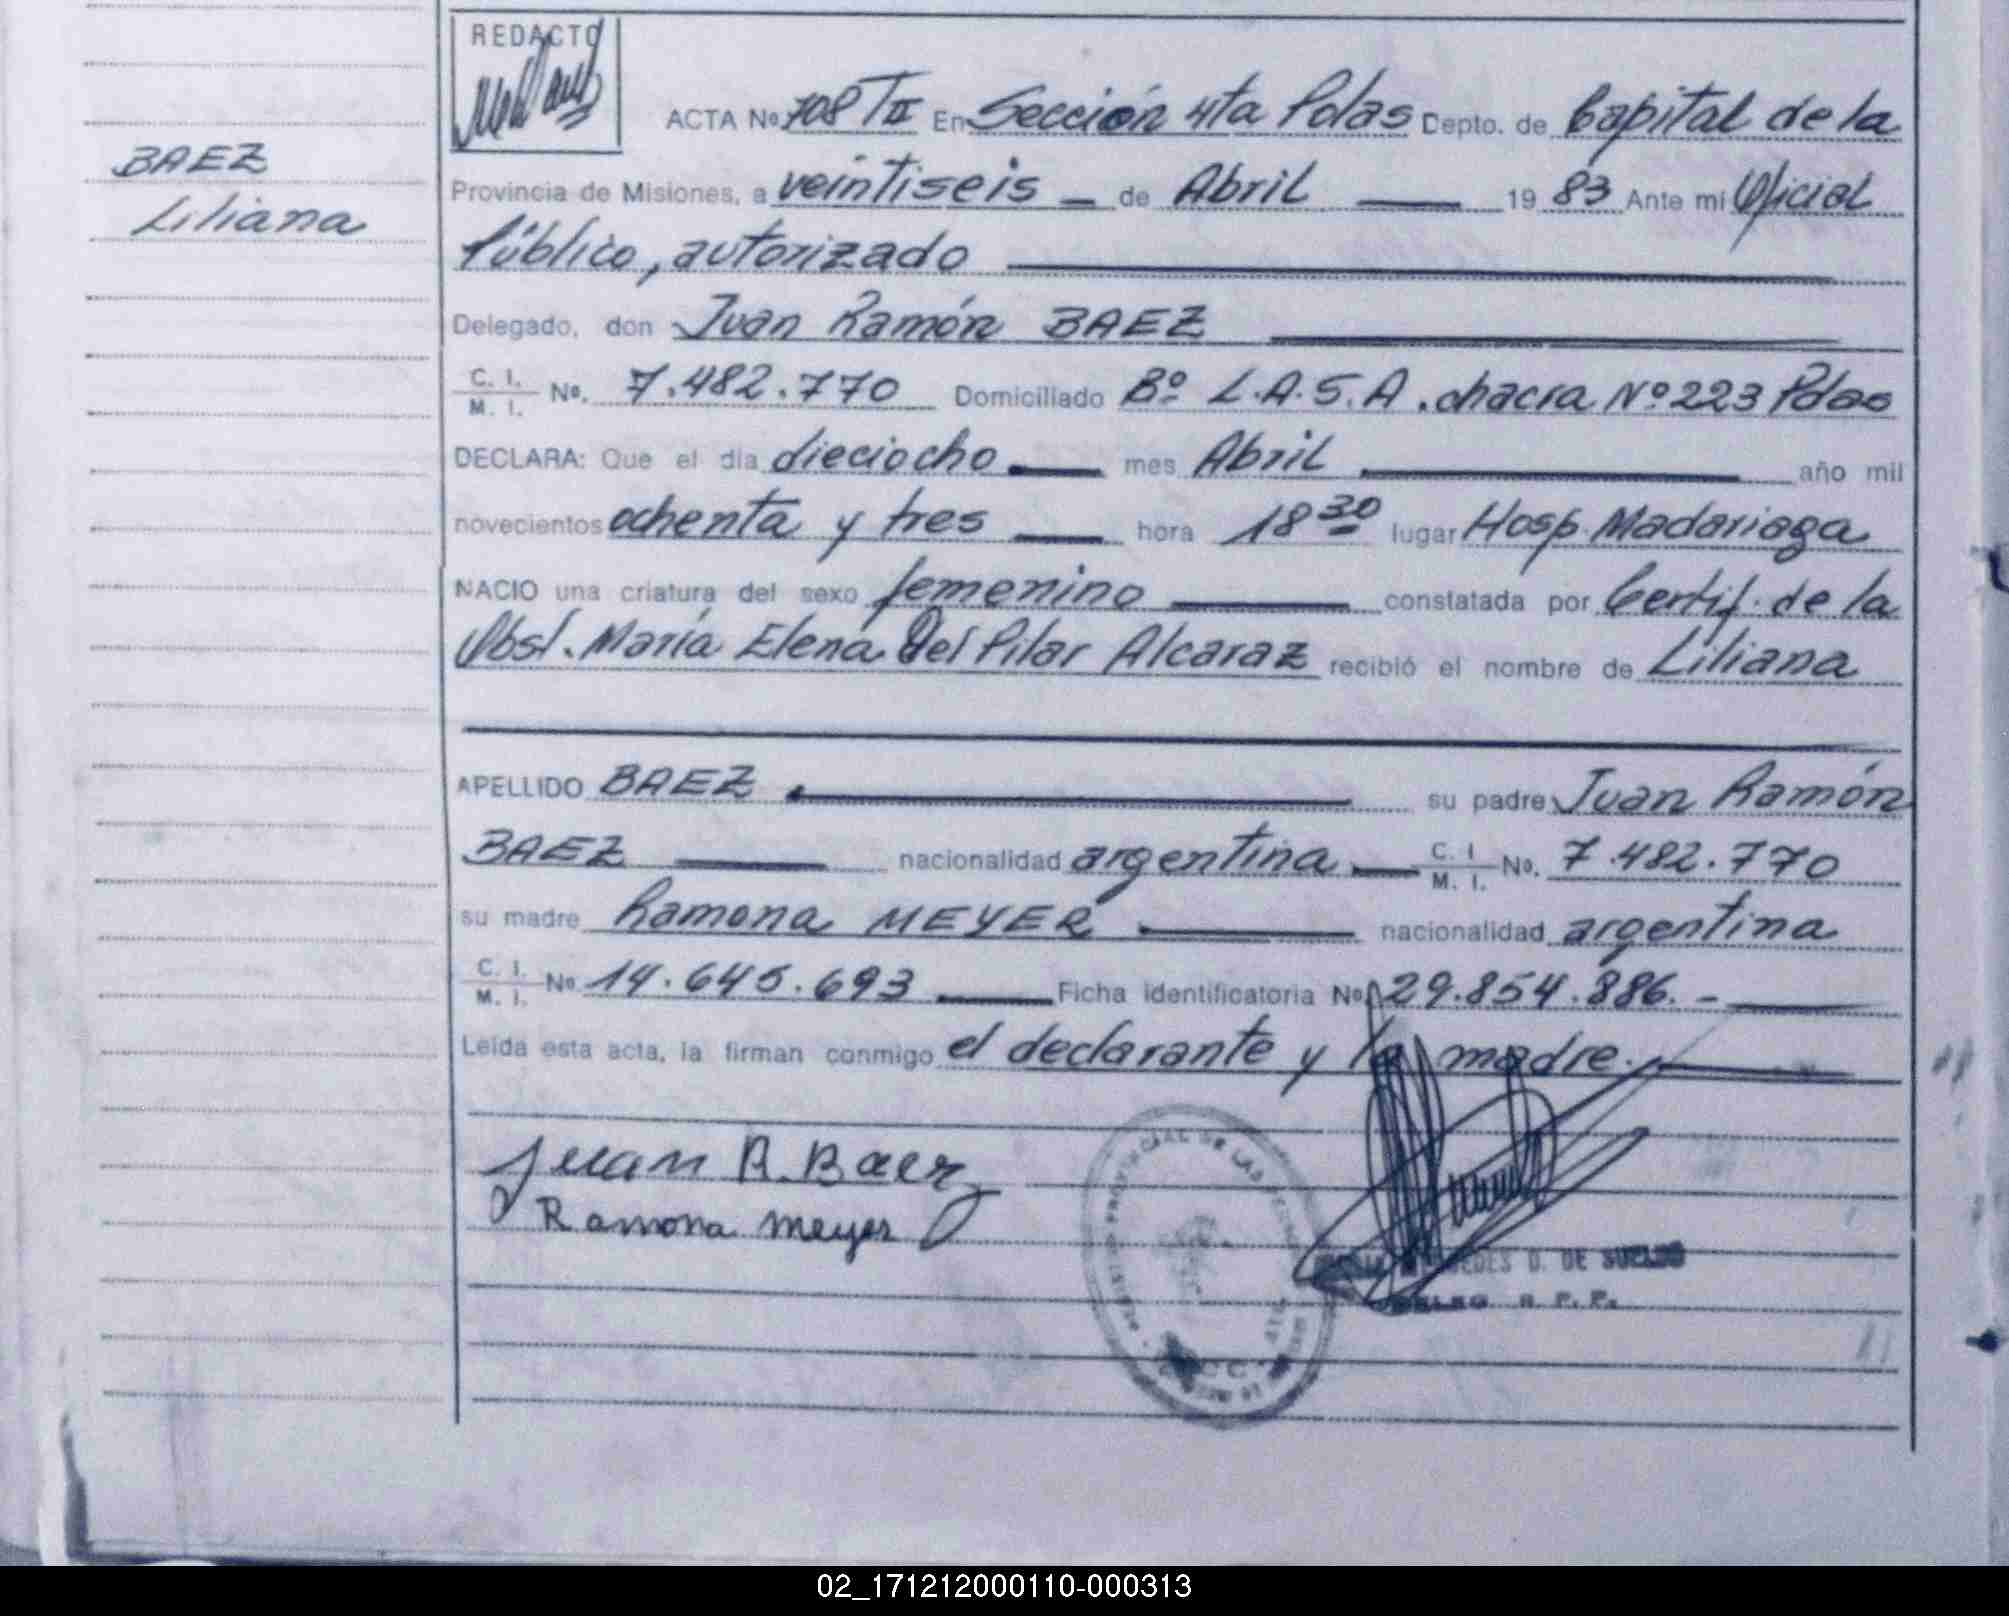 REDACTO
BAEZ
Liliana
ACTA No 708 T II En Sección 4ta Pdas Depto. de Capital de la
Provincia de Misiones, a veintiseis de Abril 1983 Ante mi Oficial
Público, autorizado
Delegado, don Juan Ramón BAEZ
C. I. M. I. No. 7.482.770 Domiciliado Bº L.A.S.A. chacra Nº 223 Pdas
DECLARA: Que el dia dieciocho mes Abril año mil
novecientos ochenta y tres hora 18 30 lugar Hosp. Madariaga
NACIO una criatura del sexo femenino constatada por Certif. de la
Obst. María Elena Del Pilar Alcaraz recibió el nombre de Liliana
APELLIDO BAEZ su padre Juan Ramón
BAEZ nacionalidad argentina C. I. M. I. No. 7.482.770
su madre Ramona MEYER nacionalidad argentina
C. I. M. I. No 14.645.693 Ficha identificatoria No 29.854.886.-
Leída esta acta, la firman conmigo el declarante y la madre.
Juan R. Baez
Ramona meyer
PROVINCIAL DE LAS
D. DE SUELDO
R. P. P.
02_171212000110-000313